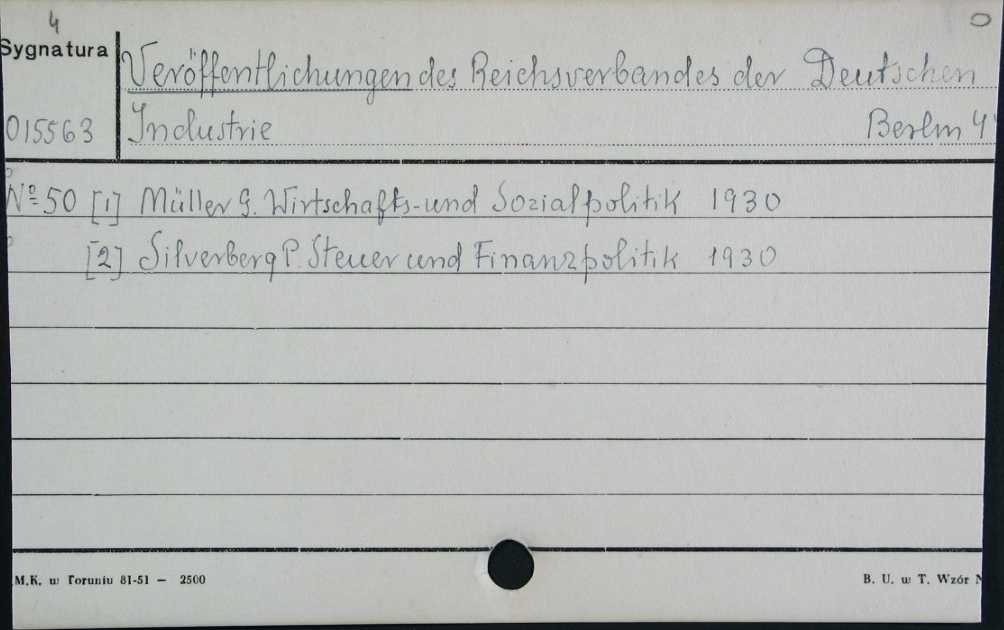 4
Sygnatura
Veröffentlichungen des Reichsverbandes der Deutschen
015563
Industrie
Berlin
Nº 50 [1] Müller G. Wirtschafts- und Sozialpolitik 1930
[2] Silverberg P. Steuer und Finanzpolitik 1930
M.K. w Toruniu 81-51 — 2500
B. U. w T. Wzór